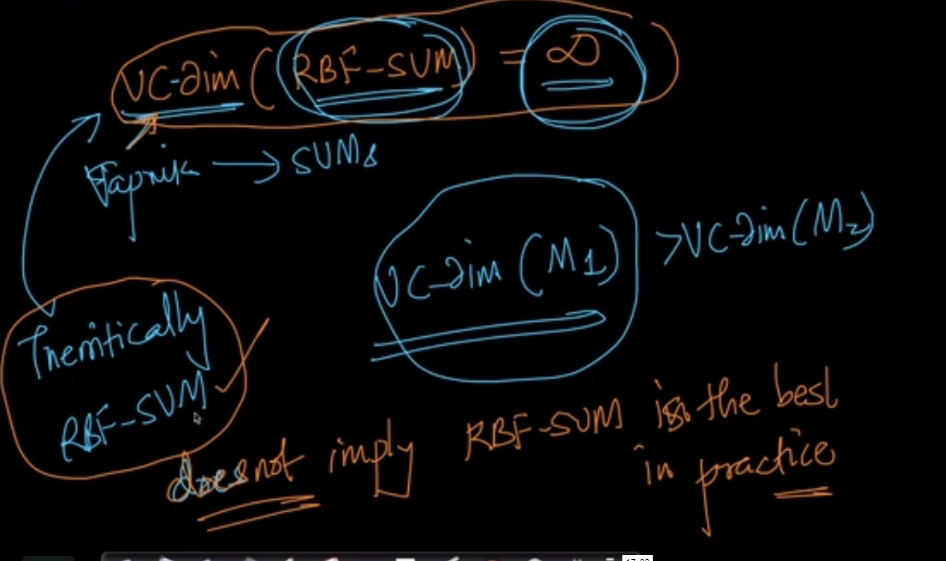 VC-dim (RBF-SVM) = ∞
Vapnik → SVMs
VC-dim (M1) > VC-dim (M2)
Theritically
RBF-SVM ✓
does not imply RBF-SVM is the best
in practice